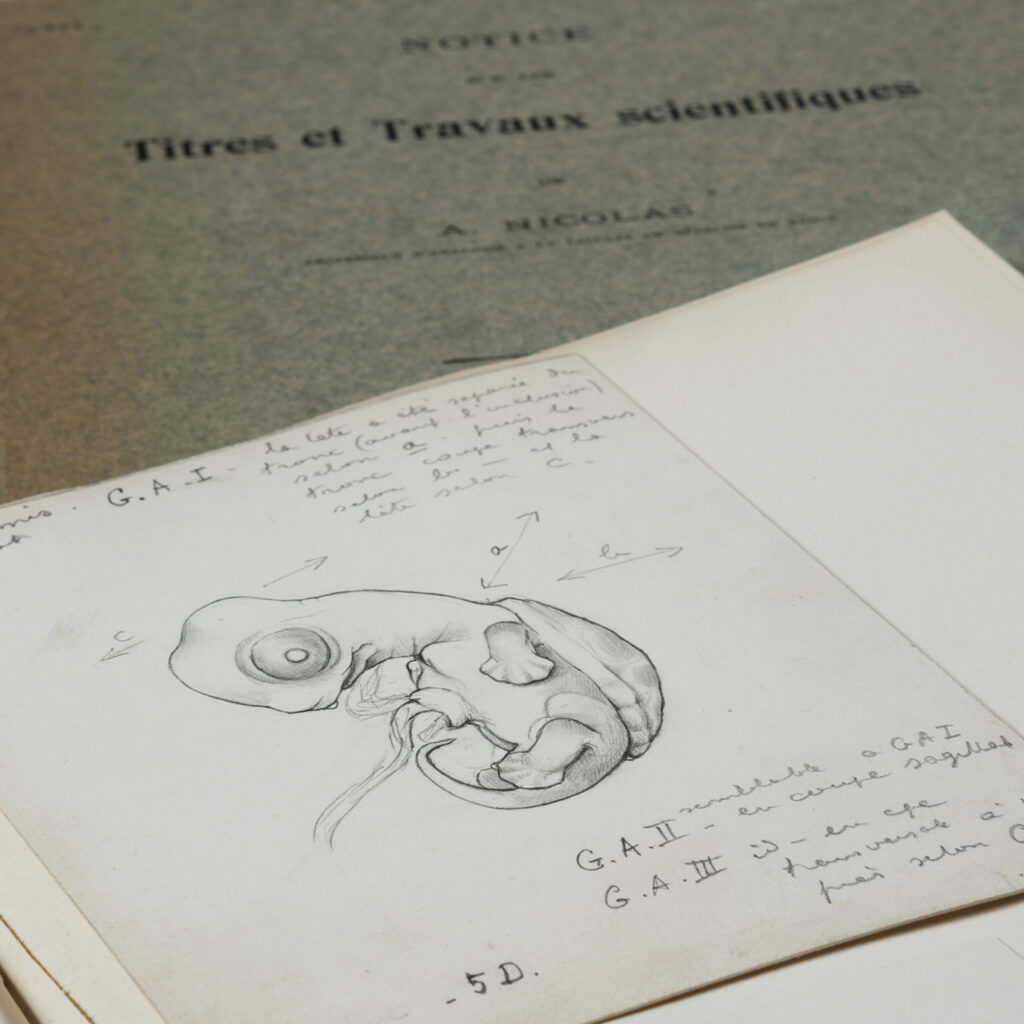 NOTICE
SUR LES
Titres et Travaux scientifiques
DE
A. NICOLAS
G.A.I - la tête a été séparée du
tronc (avant l'inclusion)
selon a - puis le
tronc coupé transvers
selon b - et la
tête selon c.
a
b
c
semblable à GAI
G.A.II - en coupe sagittal
G.A.III id - en cpe
transversale à
puis selon
- 5 D.